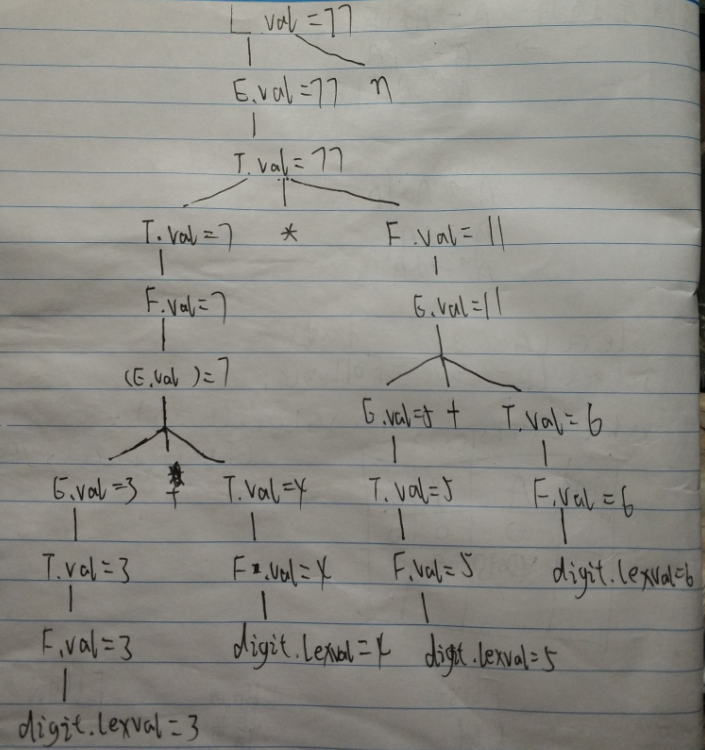 L.val=77
E.val=77 n
T.val=77
T.val=7 * F.val=11
F.val=7 E.val=11
(E.val)=7
E.val=5 + T.val=6
E.val=3 + T.val=4 T.val=5 F.val=6
T.val=3 F.val=4 F.val=5 digit.lexval=6
F.val=3 digit.lexval=4 digit.lexval=5
digit.lexval=3